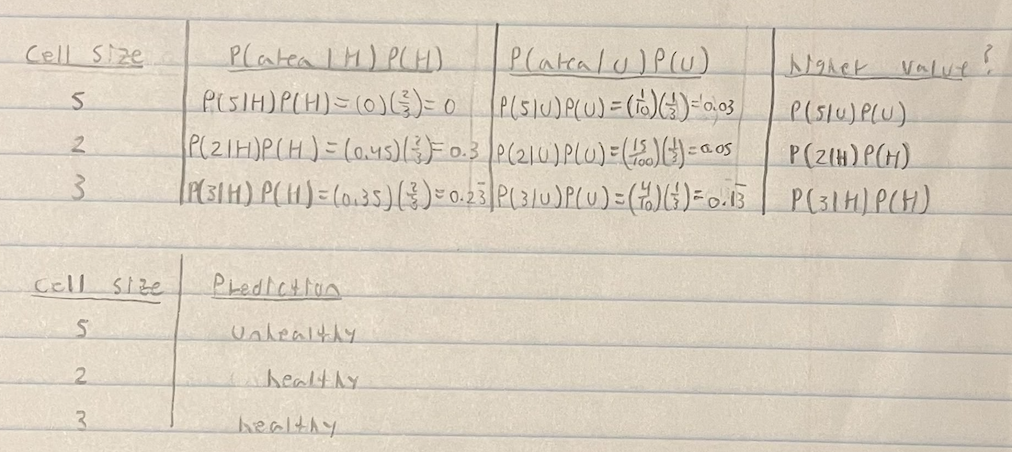 Cell Size P(area|H)P(H) P(area|U)P(U) higher value?
5 P(5|H)P(H)=(0)(2/3)=0 P(5|U)P(U)=(1/10)(1/3)=0.03 P(5|U)P(U)
2 P(2|H)P(H)=(0.45)(2/3)=0.3 P(2|U)P(U)=(15/100)(1/3)=0.05 P(2|H)P(H)
3 P(3|H)P(H)=(0.35)(2/3)=0.23̅ P(3|U)P(U)=(4/10)(1/3)=0.13̅ P(3|H)P(H)
Cell size Prediction
5 unhealthy
2 healthy
3 healthy